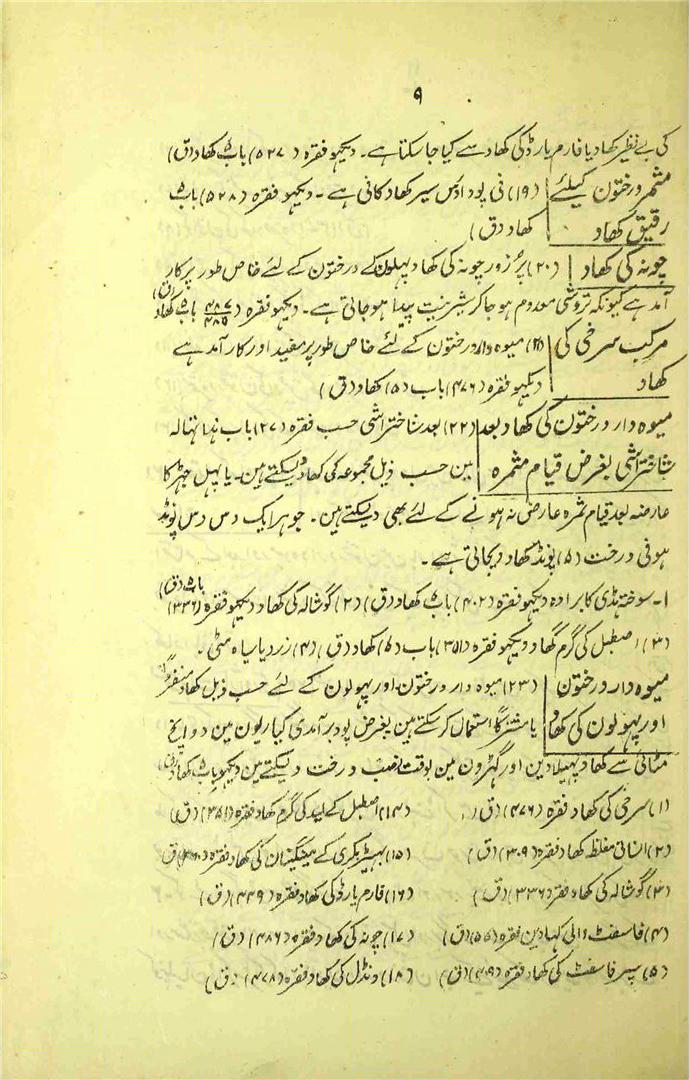 ۹
کی بے نظیر کھاد یا فارم یارڈ کی کھاد سے کیا جا سکتا ہے۔ دیکھو فقرہ (۵۲۷) باب ۵ کھاد (ق)
مثمر درختون کیلئے
رقیق کھاد
(۱۹) فی پودا دس سیر کھاد کافی ہے۔ دیکھو فقرہ (۵۲۸) باب ۵
کھاد (ق)
چونہ کی کھاد
(۲۰) پُر زور چونہ کی کھاد پھلون کے درختون کے لئے خاص طور پر کار
آمد ہے کیونکہ تروشی معدوم ہو جا کر شیرینیت پیدا ہو جاتی ہے۔ دیکھو فقرہ (۴۸۷/۴۸۵) باب ۵ کھاد (ق)
مرکب سرخی کی
کھاد
(۲۱) میوہ دار درختون کے لئے خاص طور پر مفید اور کار آمد ہے
دیکھو فقرہ (۴۷۶) باب (۵) کھاد (ق)
میوہ دار درختون کی کھاد بعد
شاختراشی بغرض قیام مثمرہ
(۲۲) بعد شاختراشی حسب فقرہ (۲۷) باب ہذا نہالہ
مین حسب ذیل مجموعہ کی کھاد دیسکتے ہین۔ یا پہل جھڑ کا
عارضہ بعد قیام ثمرہ عارض نہ ہونے کے لئے بھی دیسکتے ہین۔ جو ہر ایک دس دس پونڈ
ہو فی درخت (۵) پونڈ کھاد دیجاتی ہے۔
۱۔ سوختہ ہڈی کا برادہ دیکھو فقرہ (۴۰۲) باب ۵ کھاد (ق) (۲) گوشالہ کی کھاد دیکھو فقرہ (۳۳۶) باب ۵ (ق)
(۳) اصطبل کی گرم کھاد دیکھو فقرہ (۳۵۱) باب (۵) کھاد (ق) (۴) زرد یا سیاہ مٹی۔
میوہ دار درختون
اور پہولون کی کھاد
(۲۳) میوہ دار درختون اور پہولون کے لئے حسب ذیل کھاد منفرداً
یا مشترکاً استعمال کر سکتے ہین بغرض پود برآمدی کیاریون مین دو انچ
مٹائی سے کھاد پھیلا دین اور گھڑون مین بوقت نصب درخت دیسکتے ہین دیکھو باب ۵ کھاد (ق)
(۱) سرخی کی کھاد فقرہ (۴۷۶) (ق) (۱۴) اصطبل کے لید کی گرم کھاد فقرہ (۳۵۱) (ق)
(۲) انسانی مغلظ کھاد فقرہ (۳۰۹) (ق) (۱۵) بہیڑ بکری کے مینگنیان کی کھاد فقرہ (ق)
(۳) گوشالہ کی کھاد فقرہ (۳۳۶) (ق) (۱۶) فارم یارڈ کی کھاد فقرہ (۴۴۹) (ق)
(۴) فاسفٹ والی کہادین فقرہ (۵۵) (ق) (۱۷) چونہ کی کھاد فقرہ (۴۸۶) (ق)
(۵) سپر فاسفٹ کی کھاد فقرہ (۴۹) (ق) (۱۸) ڈنڈل کی کھاد فقرہ (۴۷۸) (ق)